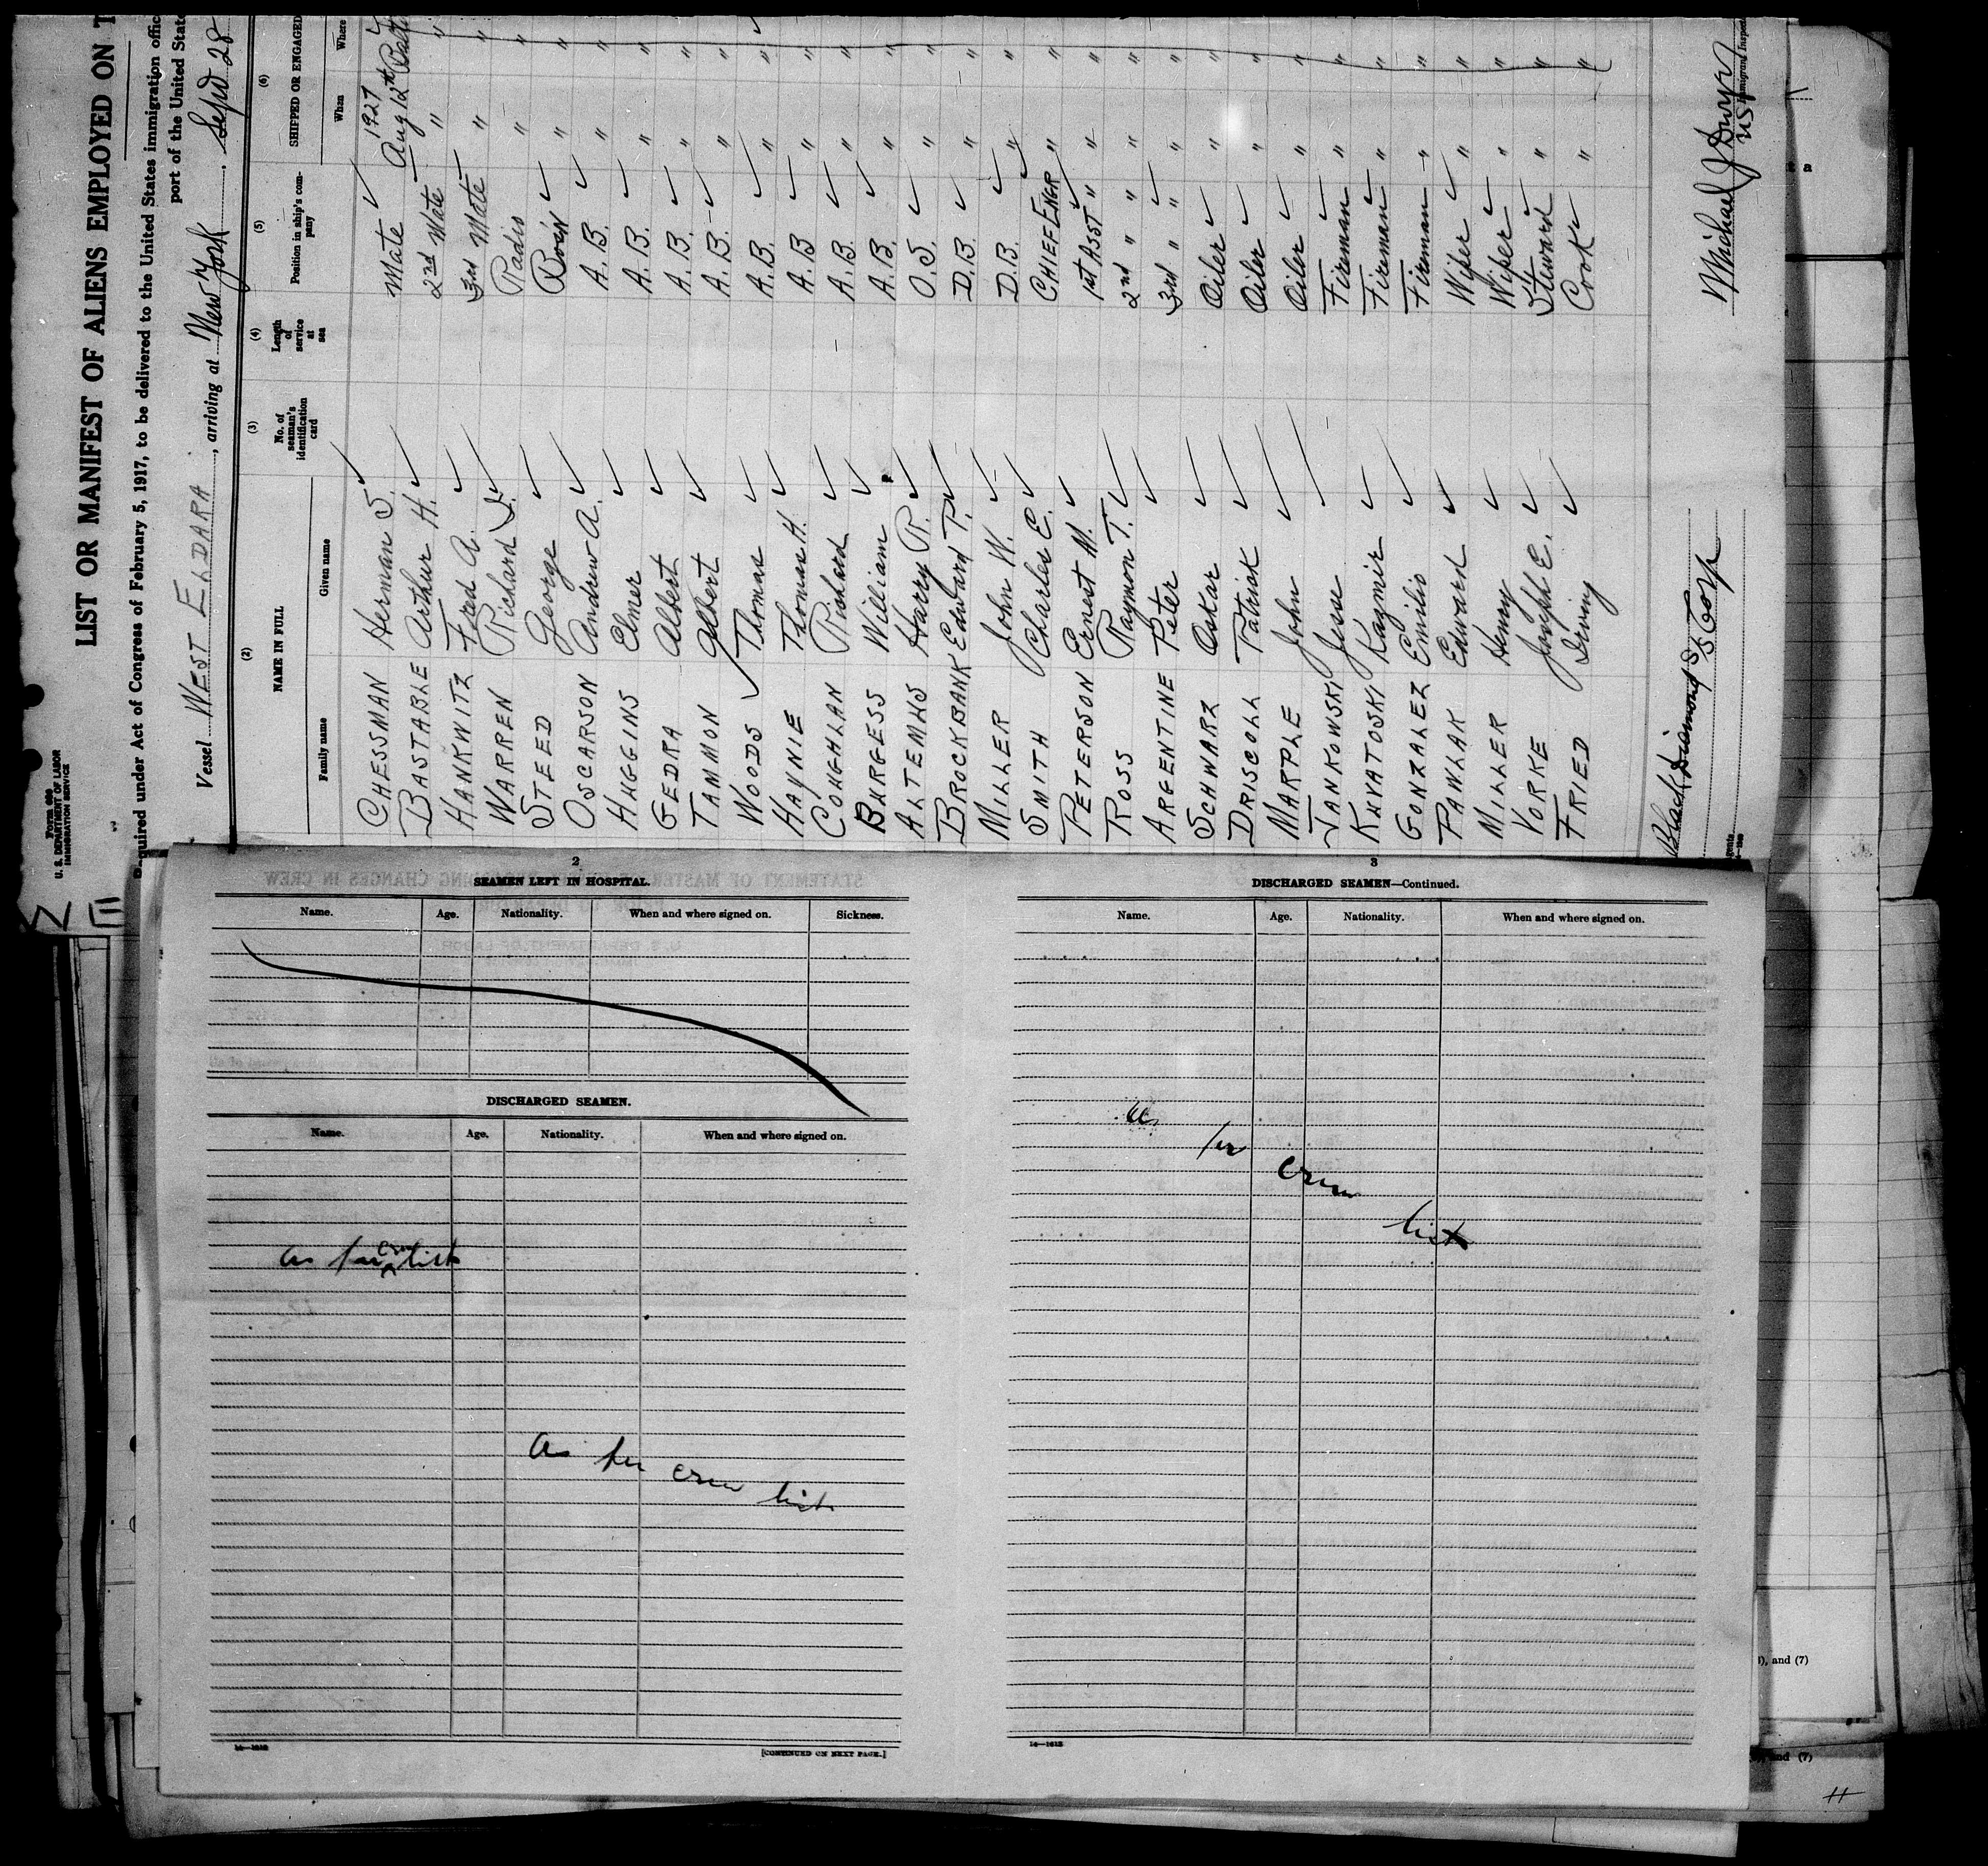 Form 680
U. S. DEPARTMENT OF LABOR
IMMIGRATION SERVICE
LIST OR MANIFEST OF ALIENS EMPLOYED ON T
quired under Act of Congress of February 5, 1917, to be delivered to the United States immigration offic
port of the United Stat
Vessel WEST ELDARA, arriving at New York, Sept 28
(2) (3) (4) (5) (6)
NAME IN FULL No. of seaman's identification card Length of service at sea Position in ship's company SHIPPED OR ENGAGED
Family name Given name When Where
1927
CHESSMAN Herman S. Mate Aug 12th
BASTABLE Arthur H. 2nd Mate "
HANKWITZ Fred A. 3rd Mate " "
WARREN Richard J. Radio " "
STEED George Bos'n " "
OSCARSON Andrew A. A.B. " "
HUGGINS Elmer A.B. " "
GEDRA Albert A.B. " "
TAMMON Albert A.B. " "
WOODS Thomas A.B. " "
HAYNIE Thomas H. A.B " "
COUGHLAN Richard A.B. " "
BURGESS William A.B. " "
ALTEMUS Harry R. O.S. " "
BROCKBANK Edward P. D.B " "
MILLER John W. D.B. " "
SMITH Charles E. CHIEF ENGR " "
PETERSON Ernest M. 1st ASST " " "
ROSS Raymon T. 2nd " " " "
ARGENTINE Peter 3rd " " " "
SCHWARZ Oskar Oiler " "
DRISCOLL Patrick Oiler " "
MARPLE John Oiler " "
JANKOWSKI Jesse Fireman " "
KUVATOSKI Kazmir Fireman " "
GONZALEZ Emilio Fireman " "
PAWLAK Edward Wiper " "
MILLER Henry Wiper " "
VORKE Joseph E. Steward " "
FRIED Irving Cook " "
Black Diamond SS Corp
Michael J Dwyer
US Immigrant Inspec
2
SEAMEN LEFT IN HOSPITAL.
Name. Age. Nationality. When and where signed on. Sickness.
DISCHARGED SEAMEN.
Name. Age. Nationality. When and where signed on.
as per crew list
As per crew list
14—1613
[CONTINUED ON NEXT PAGE.]
3
DISCHARGED SEAMEN—Continued.
Name. Age. Nationality. When and where signed on.
as
per
crew
list
14—1613
), and (7)
and (7)